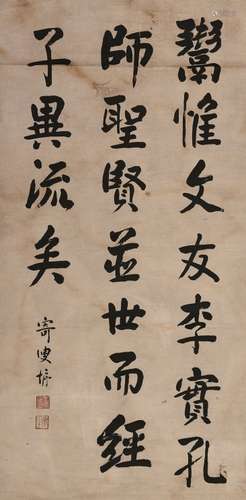 鬻惟文友李實孔
師聖賢並世而經
子異流矣
寄叟